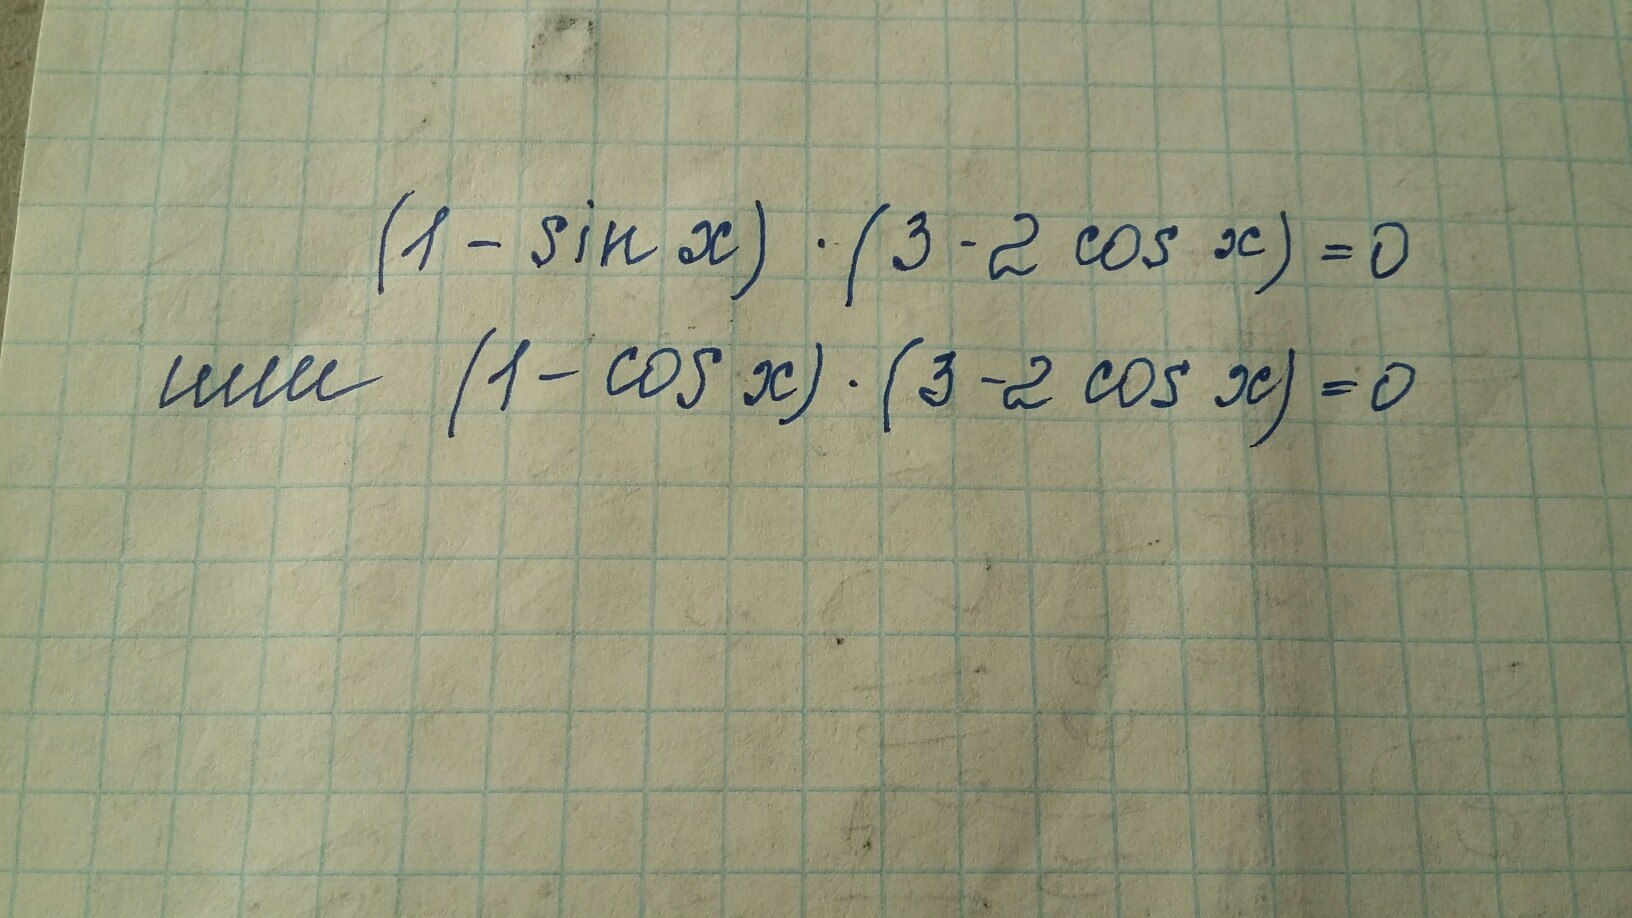 (1 - sin x) · (3 - 2 cos x) = 0
или (1 - cos x) · (3 - 2 cos x) = 0